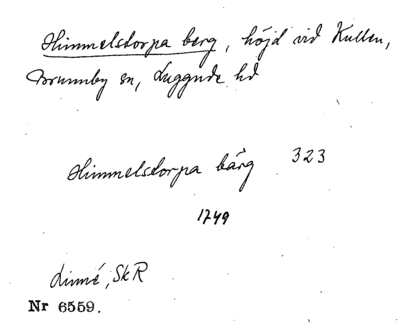 Himmelstorpa berg, höjd vid Kullen,
Brunnby sn, Luggude hd
Himmelstorpa bärg 323
1749
Linné, SkR
Nr 6559.